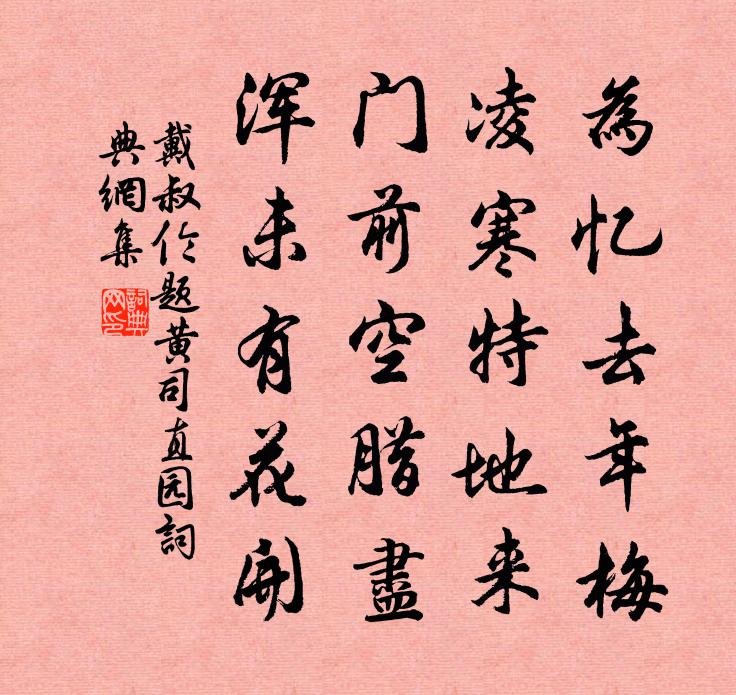 為忆去年梅
凌寒特地来
门前空腊盡
浑未有花開
戴叔伦题黄司直园詞
典網集
詞典网印